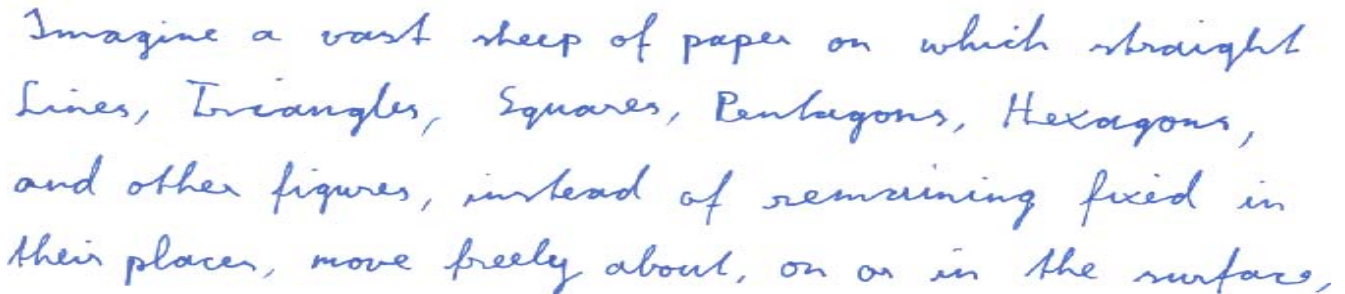 Imagine a vast sheep of paper on which straight
Lines, Triangles, Squares, Pentagons, Hexagons,
and other figures, instead of remaining fixed in
their places, move freely about, on or in the surface,